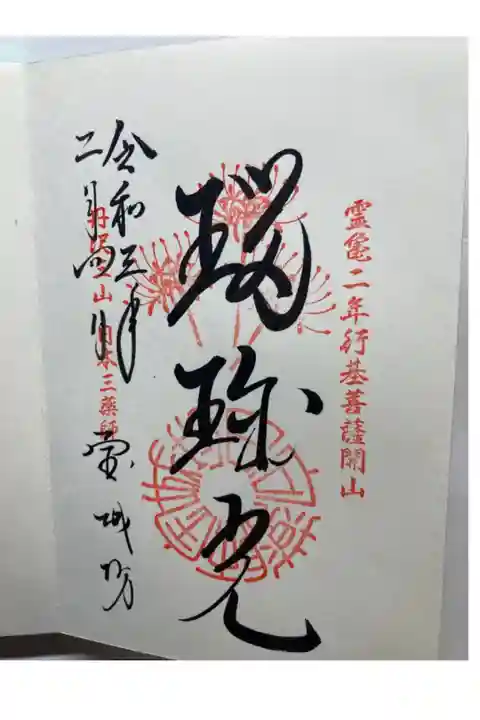 霊亀二年行基菩薩開山
瑠璃光
令和三年
二月
日本三薬師
宝城坊